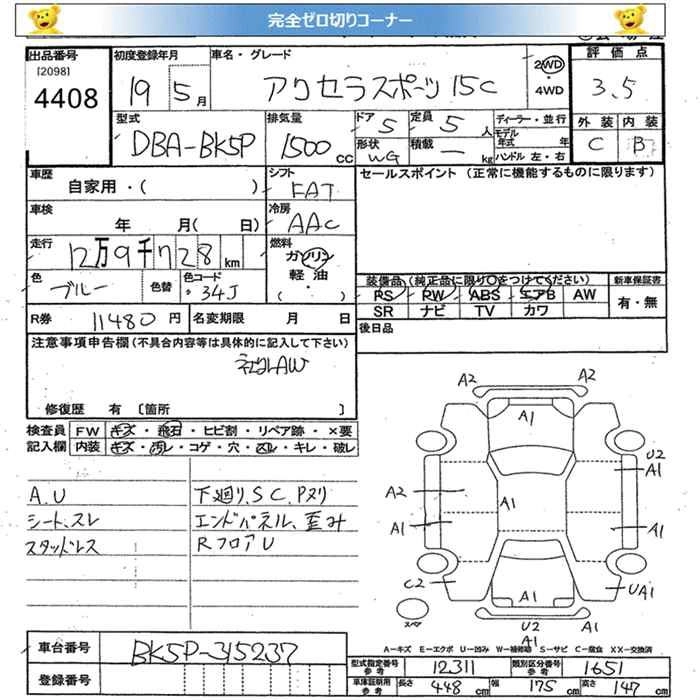 完全ゼロ切りコーナー
出品番号 初度登録年月 車名・グレード 評価点
[2098]
4408 19 5月 アクセラスポーツ 15C 2WD ・ 4WD 3.5
型式 排気量 ドア 5 定員 5人 ディーラー・並行 外装 内装
DBA-BK5P 1500cc 形状 WG 積載 ー kg モデル年式 年 C B
ハンドル 左・右
車歴 シフト セールスポイント (正常に機能するものに限ります)
自家用・( ) FAT
車検 冷房
年 月( 日) AAC
走行 燃料
12万9千728km ガソリン
軽油
( ・ )
色 ブルー 色替 色コード 34J
装備品 (純正品に限り○をつけてください) 新車保証書
PS PW ABS エアB AW 有・無
SR ナビ TV カワ
R券 11480円 名変期限 月 日 後日品
注意事項申告欄 (不具合内容等は具体的に記入して下さい)
修復歴 有 [箇所 ]
検査員 FW キズ・飛石・ヒビ割・リペア跡・×要
記入欄 内装 キズ・汚レ・コゲ・穴・スレ・キレ・破レ
A.U 下廻り、SC、Pヌリ
シート、スレ エンドパネル、歪み
スタッドレス RフロアU
A2 A2
A1
U2
A1
A2
A1
A1 A1
C2 UA1
A1
スペア
U2 A1
A1
A-キズ E-エクボ U-凹み W-補修跡 S-サビ C-腐食 XX-交換済
車台番号 BK5P-315237
登録番号
型式指定番号 参考 12311 類別区分番号 参考 1651
車庫証明用 参考 長さ 448cm 幅 175cm 高さ 147cm